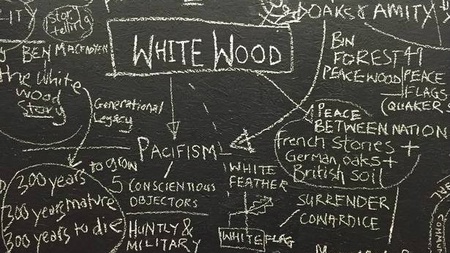 -ITY
story
telling
BEN MACFADYEN
the white
wood
story
Generational
Legacy
300 years
to grow
300 years mature
300 years to die
WHITE WOOD
PACIFISM
5 CONSCIENTIOUS
OBJECTORS
HUNTLY &
MILITARY
WHITE
FEATHER
WHITE FLAG
SURRENDER
COWARDICE
OAKS & AMITY
BIN
FOREST
PEACEWOOD
PEACE
FLAGS
(QUAKERS
PEACE
BETWEEN NATION
french stories +
German oaks +
British soil